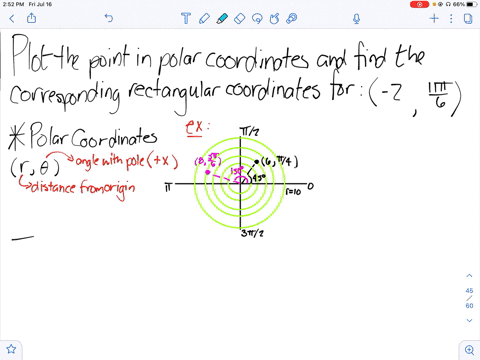 2:52 PM Fri Jul 16
66%
Plot the point in polar coordinates and find the
corresponding rectangular coordinates for: (-2, 11π/6)
* Polar Coordinates
ex:
π/2
(r, θ) angle with pole (+x)
distance from origin
(6, π/4)
150°
45°
π
0
r=10
3π/2
45
/
60